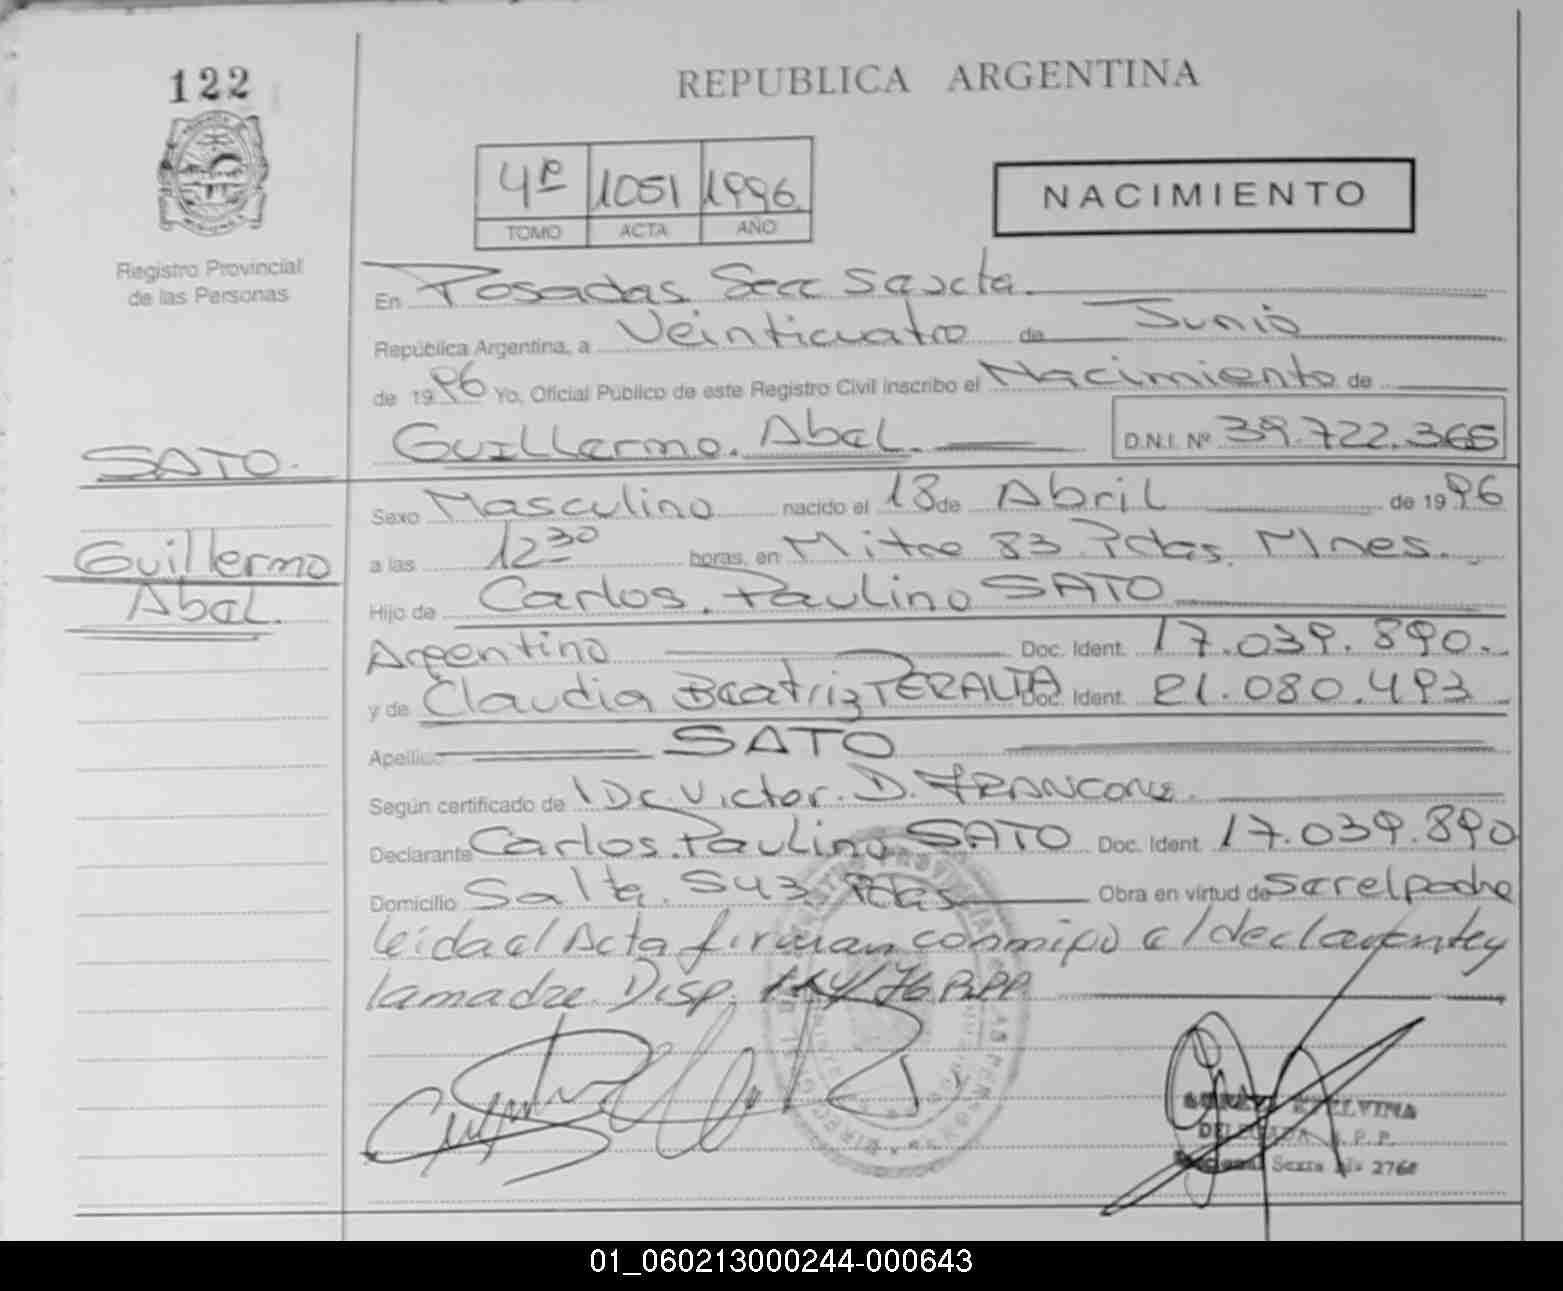 122
REPUBLICA ARGENTINA
4º 1051 1996
TOMO ACTA AÑO
NACIMIENTO
Registro Provincial
de las Personas
En Posadas Secc Sexta
República Argentina, a Veinticuatro de Junio
de 1996 Yo, Oficial Público de este Registro Civil inscribo el Nacimiento de
Guillermo. Abel. D.N.I. Nº 39.722.365
SATO.
Guillermo
Abel.
Sexo Masculino nacido el 18 de Abril de 1996
a las 12 30 horas, en Mitre 83 Pdas. Mnes.
Hijo de Carlos. Paulino SATO
Argentino Doc. Ident. 17.039.890.
y de Claudia Beatriz PERALTA Doc. Ident. 21.080.493
Apellido SATO
Según certificado de Dr. Victor. D. FRANCONE.
Declarante Carlos. Paulino SATO Doc. Ident 17.039.890
Domicilio Salta. 543 Pdas Obra en virtud de ser el padre
leida el Acta firman conmigo el declarante y
la madre. Disp. /76 R.P.P.
DELEGADA R.P.P.
Sexta 2768
01_060213000244-000643